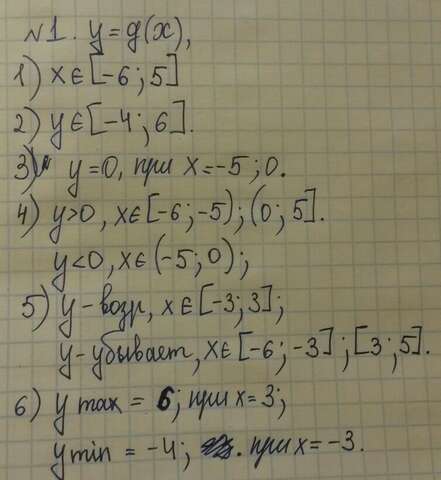 №1. y=g(x),
1) x∈[-6; 5]
2) y∈[-4; 6].
3) y=0, при x=-5; 0.
4) y>0, x∈[-6; -5); (0; 5].
y<0, x∈(-5; 0);
5) y-возр, x∈[-3; 3];
y-убывает, x∈[-6; -3]; [3; 5].
6) y max = 6; при x=3;
y min = -4; при x=-3.